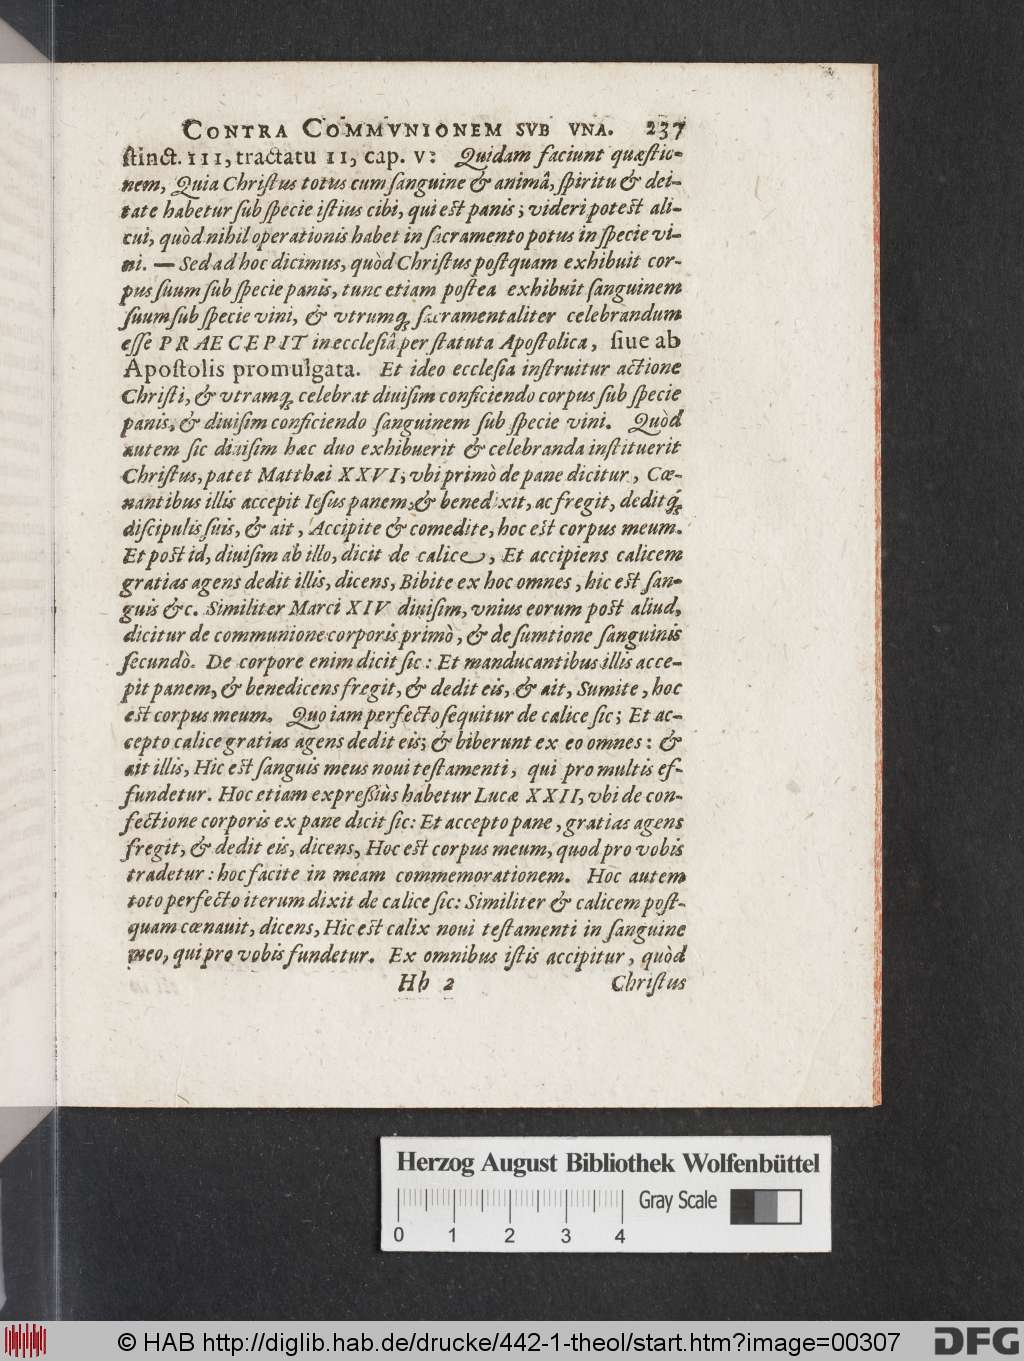 CONTRA COMMVNIONEM SVB VNA. 237
ſtinct. III, tractatu II, cap. V: Quidam faciunt quæſtio-
nem, Quia Chriſtus totus cum ſanguine & animâ, ſpiritu & dei-
tate habetur ſub ſpecie iſtius cibi, qui eſt panis; videri poteſt ali-
cui, quòd nihil operationis habet in ſacramento potus in ſpecie vi-
ni. — Sed ad hoc dicimus, quòd Chriſtus poſtquam exhibuit cor-
pus ſuum ſub ſpecie panis, tunc etiam poſtea exhibuit ſanguinem
ſuum ſub ſpecie vini, & vtrumq; ſacramentaliter celebrandum
eſſe PRAECEPIT in eccleſiâ per ſtatuta Apoſtolica, ſiue ab
Apoſtolis promulgata. Et ideo eccleſia inſtruitur actione
Chriſti, & vtramq; celebrat diuiſim conficiendo corpus ſub ſpecie
panis, & diuiſim conficiendo ſanguinem ſub ſpecie vini. Quòd
autem ſic diuiſim hæc duo exhibuerit & celebranda inſtituerit
Chriſtus, patet Matthæi XXVI; vbi primò de pane dicitur, Cœ-
nantibus illis accepit Ieſus panem, & benedixit, ac fregit, deditq́;
diſcipulis ſuis, & ait, Accipite & comedite, hoc eſt corpus meum.
Et poſt id, diuiſim ab illo, dicit de calice, Et accipiens calicem
gratias agens dedit illis, dicens, Bibite ex hoc omnes, hic eſt ſan-
guis &c. Similiter Marci XIV diuiſim, vnius eorum poſt aliud,
dicitur de communione corporis primò, & de ſumtione ſanguinis
ſecundò. De corpore enim dicit ſic: Et manducantibus illis acce-
pit panem, & benedicens fregit, & dedit eis, & ait, Sumite, hoc
eſt corpus meum. Quo iam perfecto ſequitur de calice ſic; Et ac-
cepto calice gratias agens dedit eis; & biberunt ex eo omnes: &
ait illis, Hic eſt ſanguis meus noui teſtamenti, qui pro multis ef-
fundetur. Hoc etiam expreßiùs habetur Lucæ XXII, vbi de con-
fectione corporis ex pane dicit ſic: Et accepto pane, gratias agens
fregit, & dedit eis, dicens, Hoc eſt corpus meum, quod pro vobis
tradetur: hoc facite in meam commemorationem. Hoc autem
toto perfecto iterum dixit de calice ſic: Similiter & calicem poſt-
quam cœnauit, dicens, Hic eſt calix noui teſtamenti in ſanguine
meo, qui pro vobis fundetur. Ex omnibus iſtis accipitur, quòd
Hh 2 Chriſtus
Herzog August Bibliothek Wolfenbüttel
Gray Scale
0 1 2 3 4
© HAB http://diglib.hab.de/drucke/442-1-theol/start.htm?image=00307 DFG